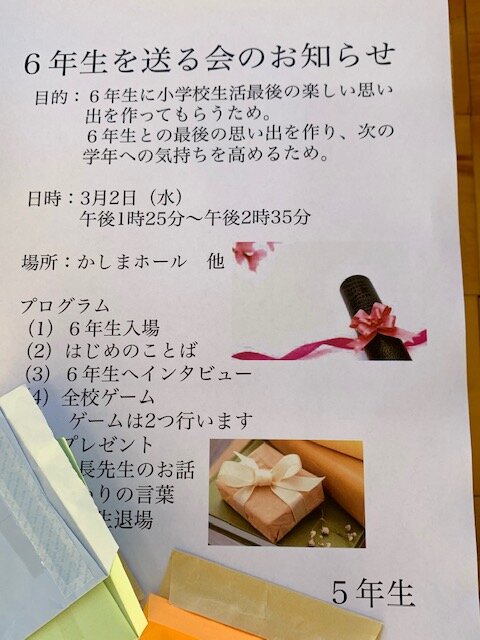 ６年生を送る会のお知らせ
目的：６年生に小学校生活最後の楽しい思い
出を作ってもらうため。
６年生との最後の思い出を作り、次の
学年への気持ちを高めるため。
日時：3月2日（水）
午後1時25分〜午後2時35分
場所：かしまホール　他
プログラム
（1）６年生入場
（2）はじめのことば
（3）６年生へインタビュー
4）全校ゲーム
ゲームは2つ行います
プレゼント
長先生のお話
わりの言葉
生退場
５年生